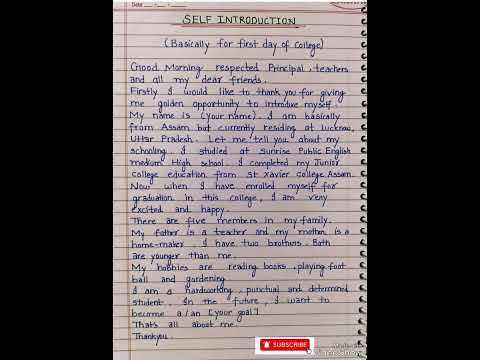 Date
SELF INTRODUCTION
(Basically for first day of college)
Good Morning respected Principal, teachers
and all my dear friends.
Firstly I would like to thank you for giving
me golden opportunity to introduce myself.
My name is (your name). I am basically
from Assam but currently residing at Lucknow,
Uttar Pradesh. Let me tell you about my
schooling. I studied at Sunrise Public English
medium High school. I completed my Junior
college education from St Xavier college Assam.
Now when I have enrolled myself for
graduation in this college, I am very
excited and happy.
There are five members in my family.
My father is a teacher and my mother is a
home-maker. I have two brothers. Both
are younger than me.
My hobbies are reading books, playing foot
ball and gardening.
I am a hardworking, punctual and determined
student. In the future, I want to
become a/an [your goal]
Thats all about me.
Thankyou.
SUBSCRIBE